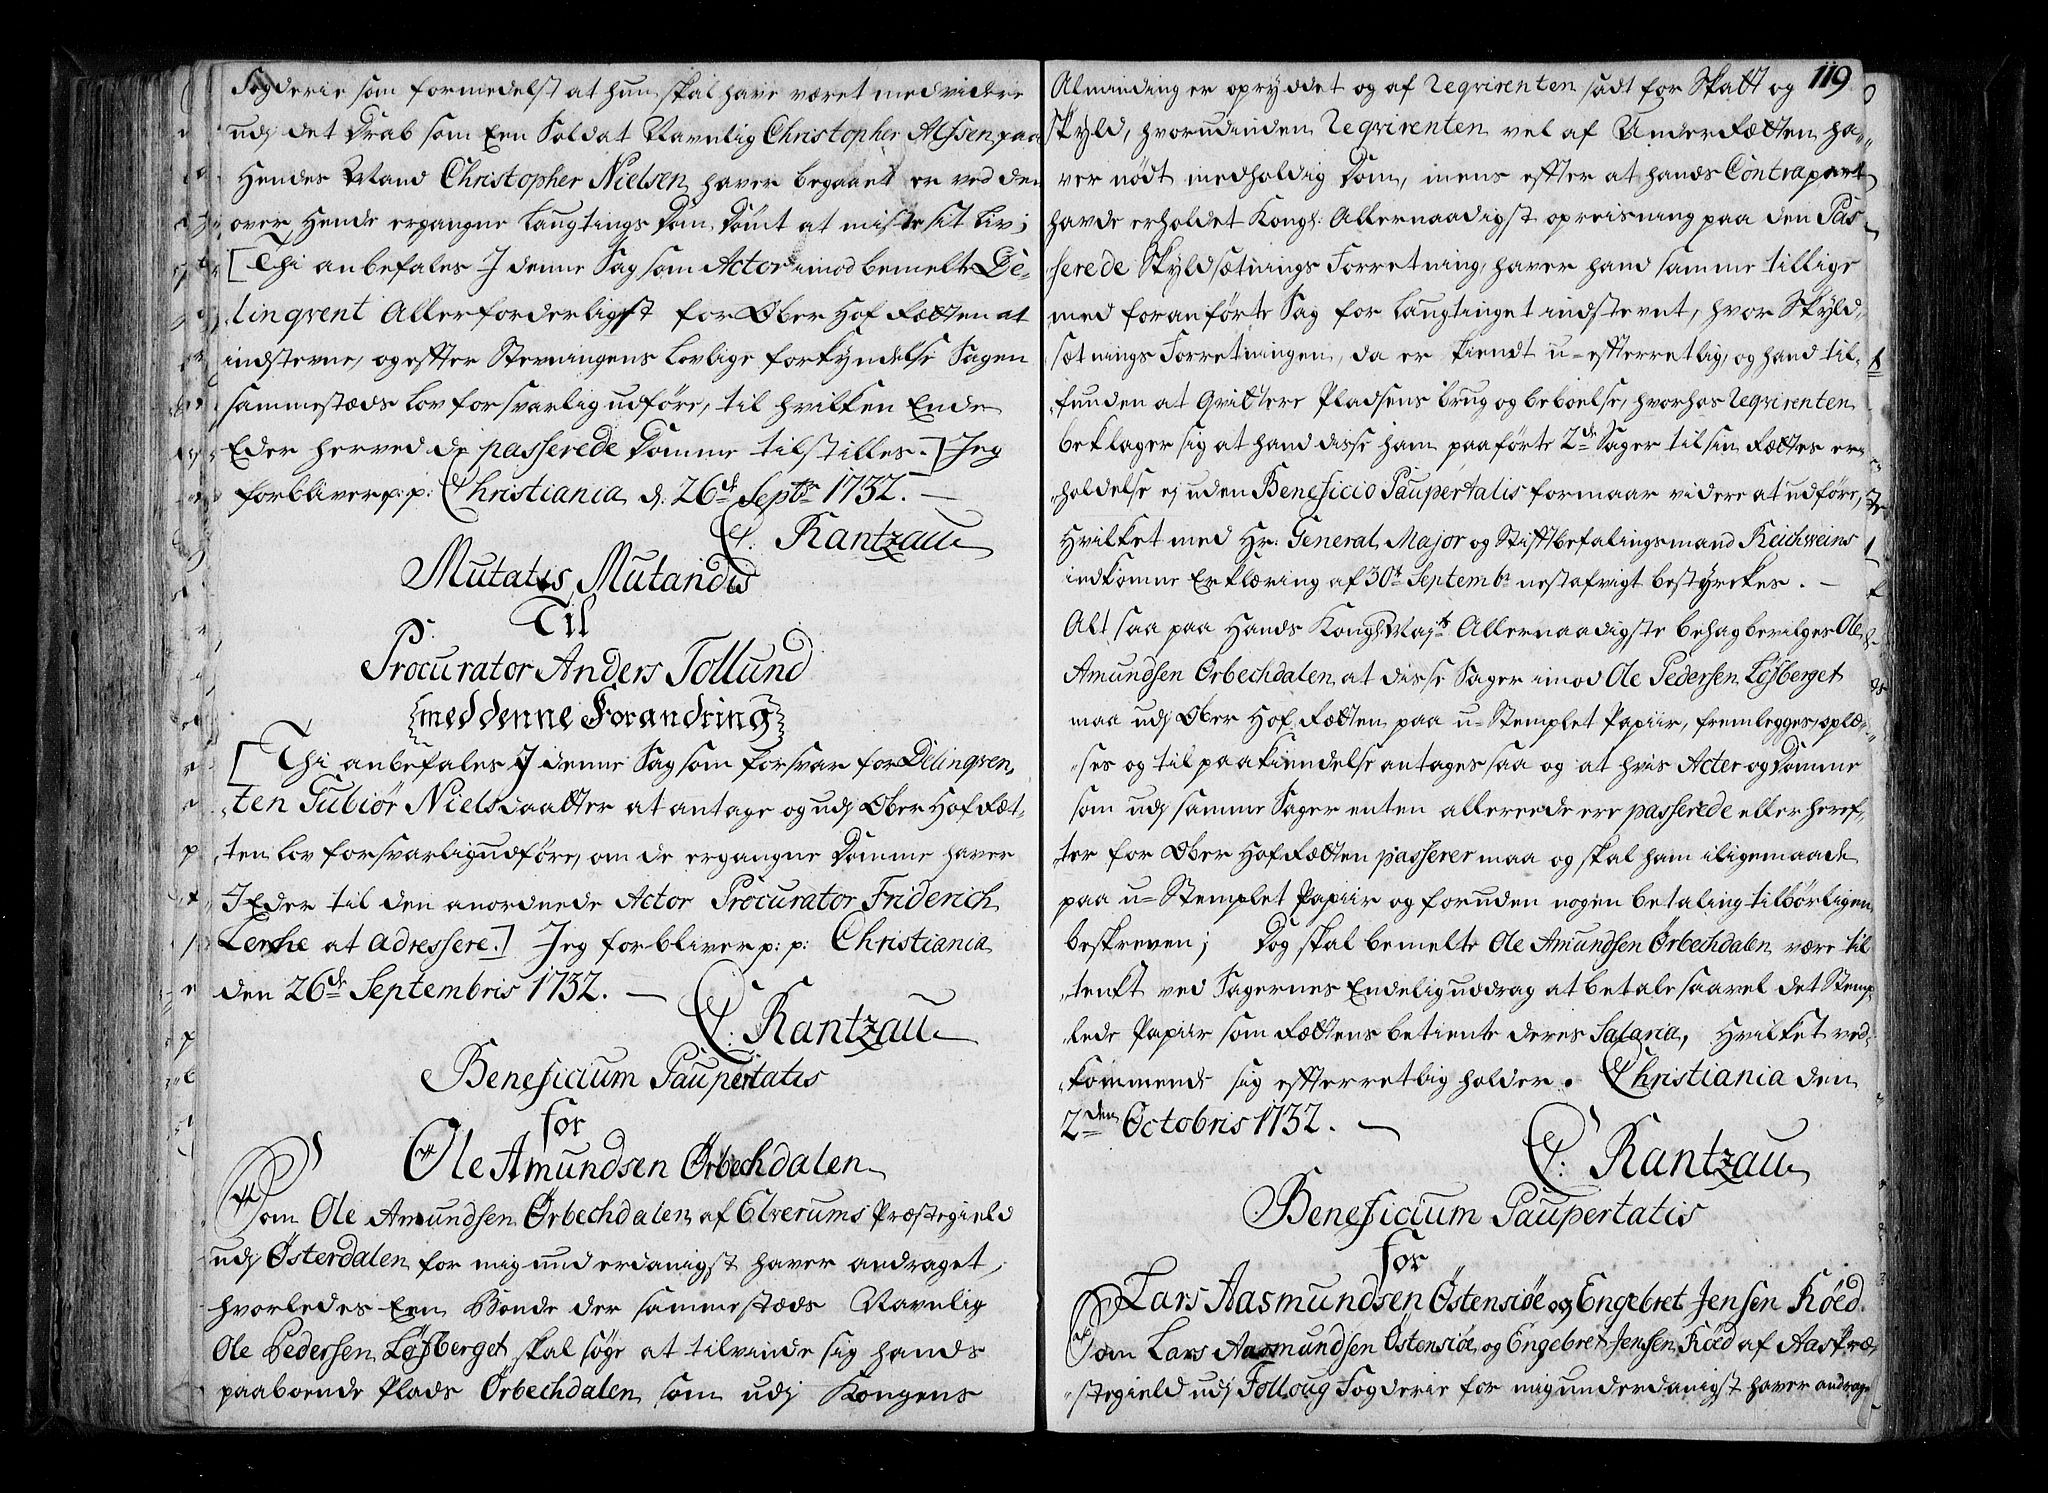 Fogderie som formedelst at hun skal have været medvidere
udj det Drab som Een Soldat Navnlig Christopher Alfsen paa
Hendes Mand Christopher Nielsen haver begaaet er ved den
over Hende ergangne Laugtings Dom Dömt at miste sit Liv;
[Thi anbefales I denne Sag som Actor imod bemelte De-
linqvent Allerforderligst for Ober Hof Retten at
indstevne, og effter Stevningens Lovlige forkyndelse Sagen
sammestæds Lov forsvarlig udföre, til hvilken Ende
Eder herved de passerede Domme tilstilles.] Jeg
forbliver p: p: Christiania d. 26de Septbr 1732. —
C. Rantzau
Mutatis Mutandis
Til
Procurator Anders Tollund
med denne Forandring
[Thi anbefales I denne Sag som forsvar for Delinqven-
ten Gubiör Nielsdaatter at antage og udj Ober Hof Ret-
ten Lov forsvarlig udföre, om de ergangne Domme haver
I Eder til den anordnede Actor Procurator Friderich
Lerche at adressere.] Jeg forbliver p: p: Christiania
den 26de Septembris 1732. —
C. Rantzau
Beneficium Paupertatis
for
Ole Amundsen Örbechdalen
Som Ole Amundsen Örbechdalen af Elverums Præstegield
udj Österdalen for mig underdanigst haver andraget,
hvorledes Een Bonde der sammestæds Navnlig
Ole Pedersen Löfberget skal söge at tilvinde sig hands
paaboende Plads Örbechdalen som udj Kongens
119
Alminding er opryddet og af Reqvirenten sadt for Skatt og
Skyld, hvorudinden Reqvirenten vel af UnderRetten ha-
ver nödt medholdig Dom, mens effter at hands Contrapart
havde erholdet Kongl: Allernaadigst opreisning paa den Pas-
serede Skyldsætnings Forretning, haver hand samme tillige
med foranförte Sag for Laugtinget indstevnt, hvor Skyld-
sætnings Forretningen, da er kiendt u-efterretlig, og hand til-
funden at Qvittere Pladsens brug og beboelse, hvorhos Reqvirenten
beklager sig at hand disse ham paaförte 2de Sager til sin Rettes er-
holdelse ej uden Beneficio Paupertatis formaar videre at udföre,
Hvilket med Hr: General Major og Stiftbefalingsmand Reichweins
indkomne Erklæring af 30te Septembr nestafvigt bestyrckes. —
Alt saa paa Hands Kongl: Majts Allernaadigste behag bevilges Ole
Amundsen Örbechdalen at disse Sager imod Ole Pedersen Löfberget
maa udj Ober Hof Retten paa u-Stemplet Papiir, fremlegges, oplæ-
ses og til paakiendelse antages saa og at hvis Acter og Domme
som udj samme Sager enten allereede ere passerede eller heref-
ter for Ober Hof Retten passerer maa og skal ham iligemaade
paa u-Stemplet Papiir og foruden nogen betaling tilbörligen
beskreven; Dog skal bemelte Ole Amundsen Örbechdalen være til
tenkt ved Sagernes Endelig uddrag at betale saavel det Stemp-
lede Papiir som Rettens betiente deres Salaria, Hvilket ved-
kommende sig effterretlig holder. Christiania den
2den Octobris 1732. —
C. Rantzau
Beneficium Paupertatis
for
Lars Aasmundsen Östensiöe og Engebret Jensen Röed.
Som Lars Aasmundsen Östensiöe og Engebret Jensen Röed af Aas Præ-
stegield udj Folloug Fogderie for mig underdanigst haver andrage